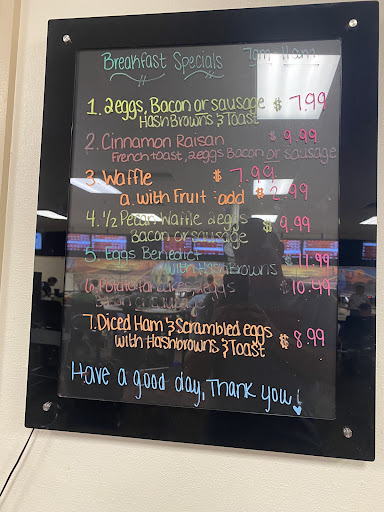 Breakfast Specials 7am-11am
1. 2eggs, Bacon or sausage $ 7.99
HashBrowns & Toast
2. Cinnamon Raisan $ 9.99
French toast, 2eggs Bacon or sausage
3. Waffle $ 7.99
a. with Fruit add $ 2.99
4. 1/2 Pecan Waffle 2eggs $ 9.99
Bacon or sausage
5. Eggs Benedict $ 11.99
with HashBrowns
6. Potato Pancakes, eggs $ 10.49
Bacon or
7. Diced Ham & Scrambled eggs $ 8.99
with Hashbrowns & Toast
Have a good day, Thank you!